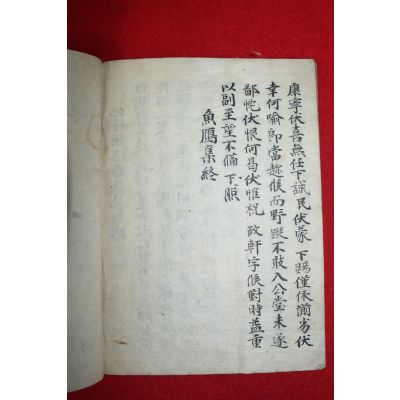 康寧伏喜無任下誠民伏蒙 下賜僅依瀾劣伏
幸何喩卽當趍候而野蹤不敢入公堂未遂
鄙忱伏恨何曷伏惟祝 政軒字候對時益重
以副至望不備 下照
魚鴈集終